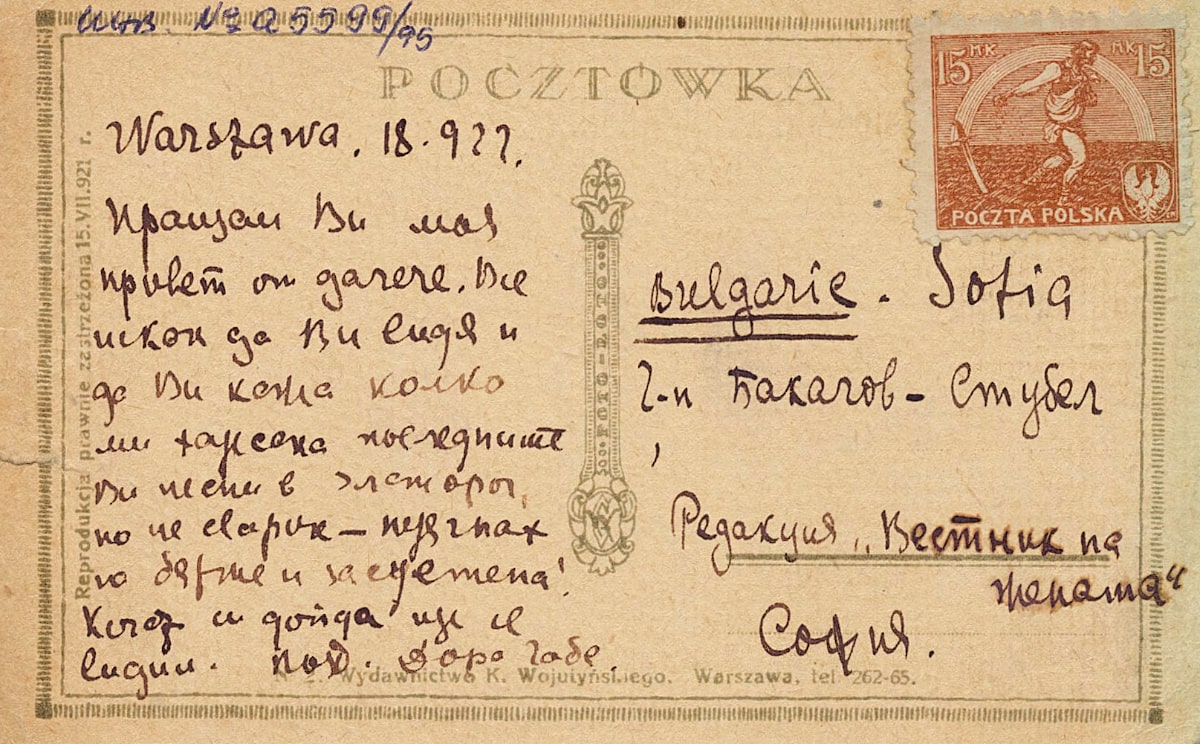 Инв. № а 5599/95
POCZTOWKA
15 MK MK 15
POCZTA POLSKA
Warszawa, 18.9 22.
Пращам Ви моя
привет от далече. Все
исках да Ви видя и
да Ви кажа колко
ми харесаха последните
Ви песни в Златорог,
но не сварих – тръгнах
по бързе и
Когато си дойда ще се
видим. Дора Габе.
Bulgarie. Sofia
Г-н Бакалов – Стубел
Редакция „Вестник на
жената“
София.
Reprodukcja prawnie zastrzeżona 15.VII.921 r.
Wydawnictwo K. Wojutyńskiego. Warszawa, tel 262-65.